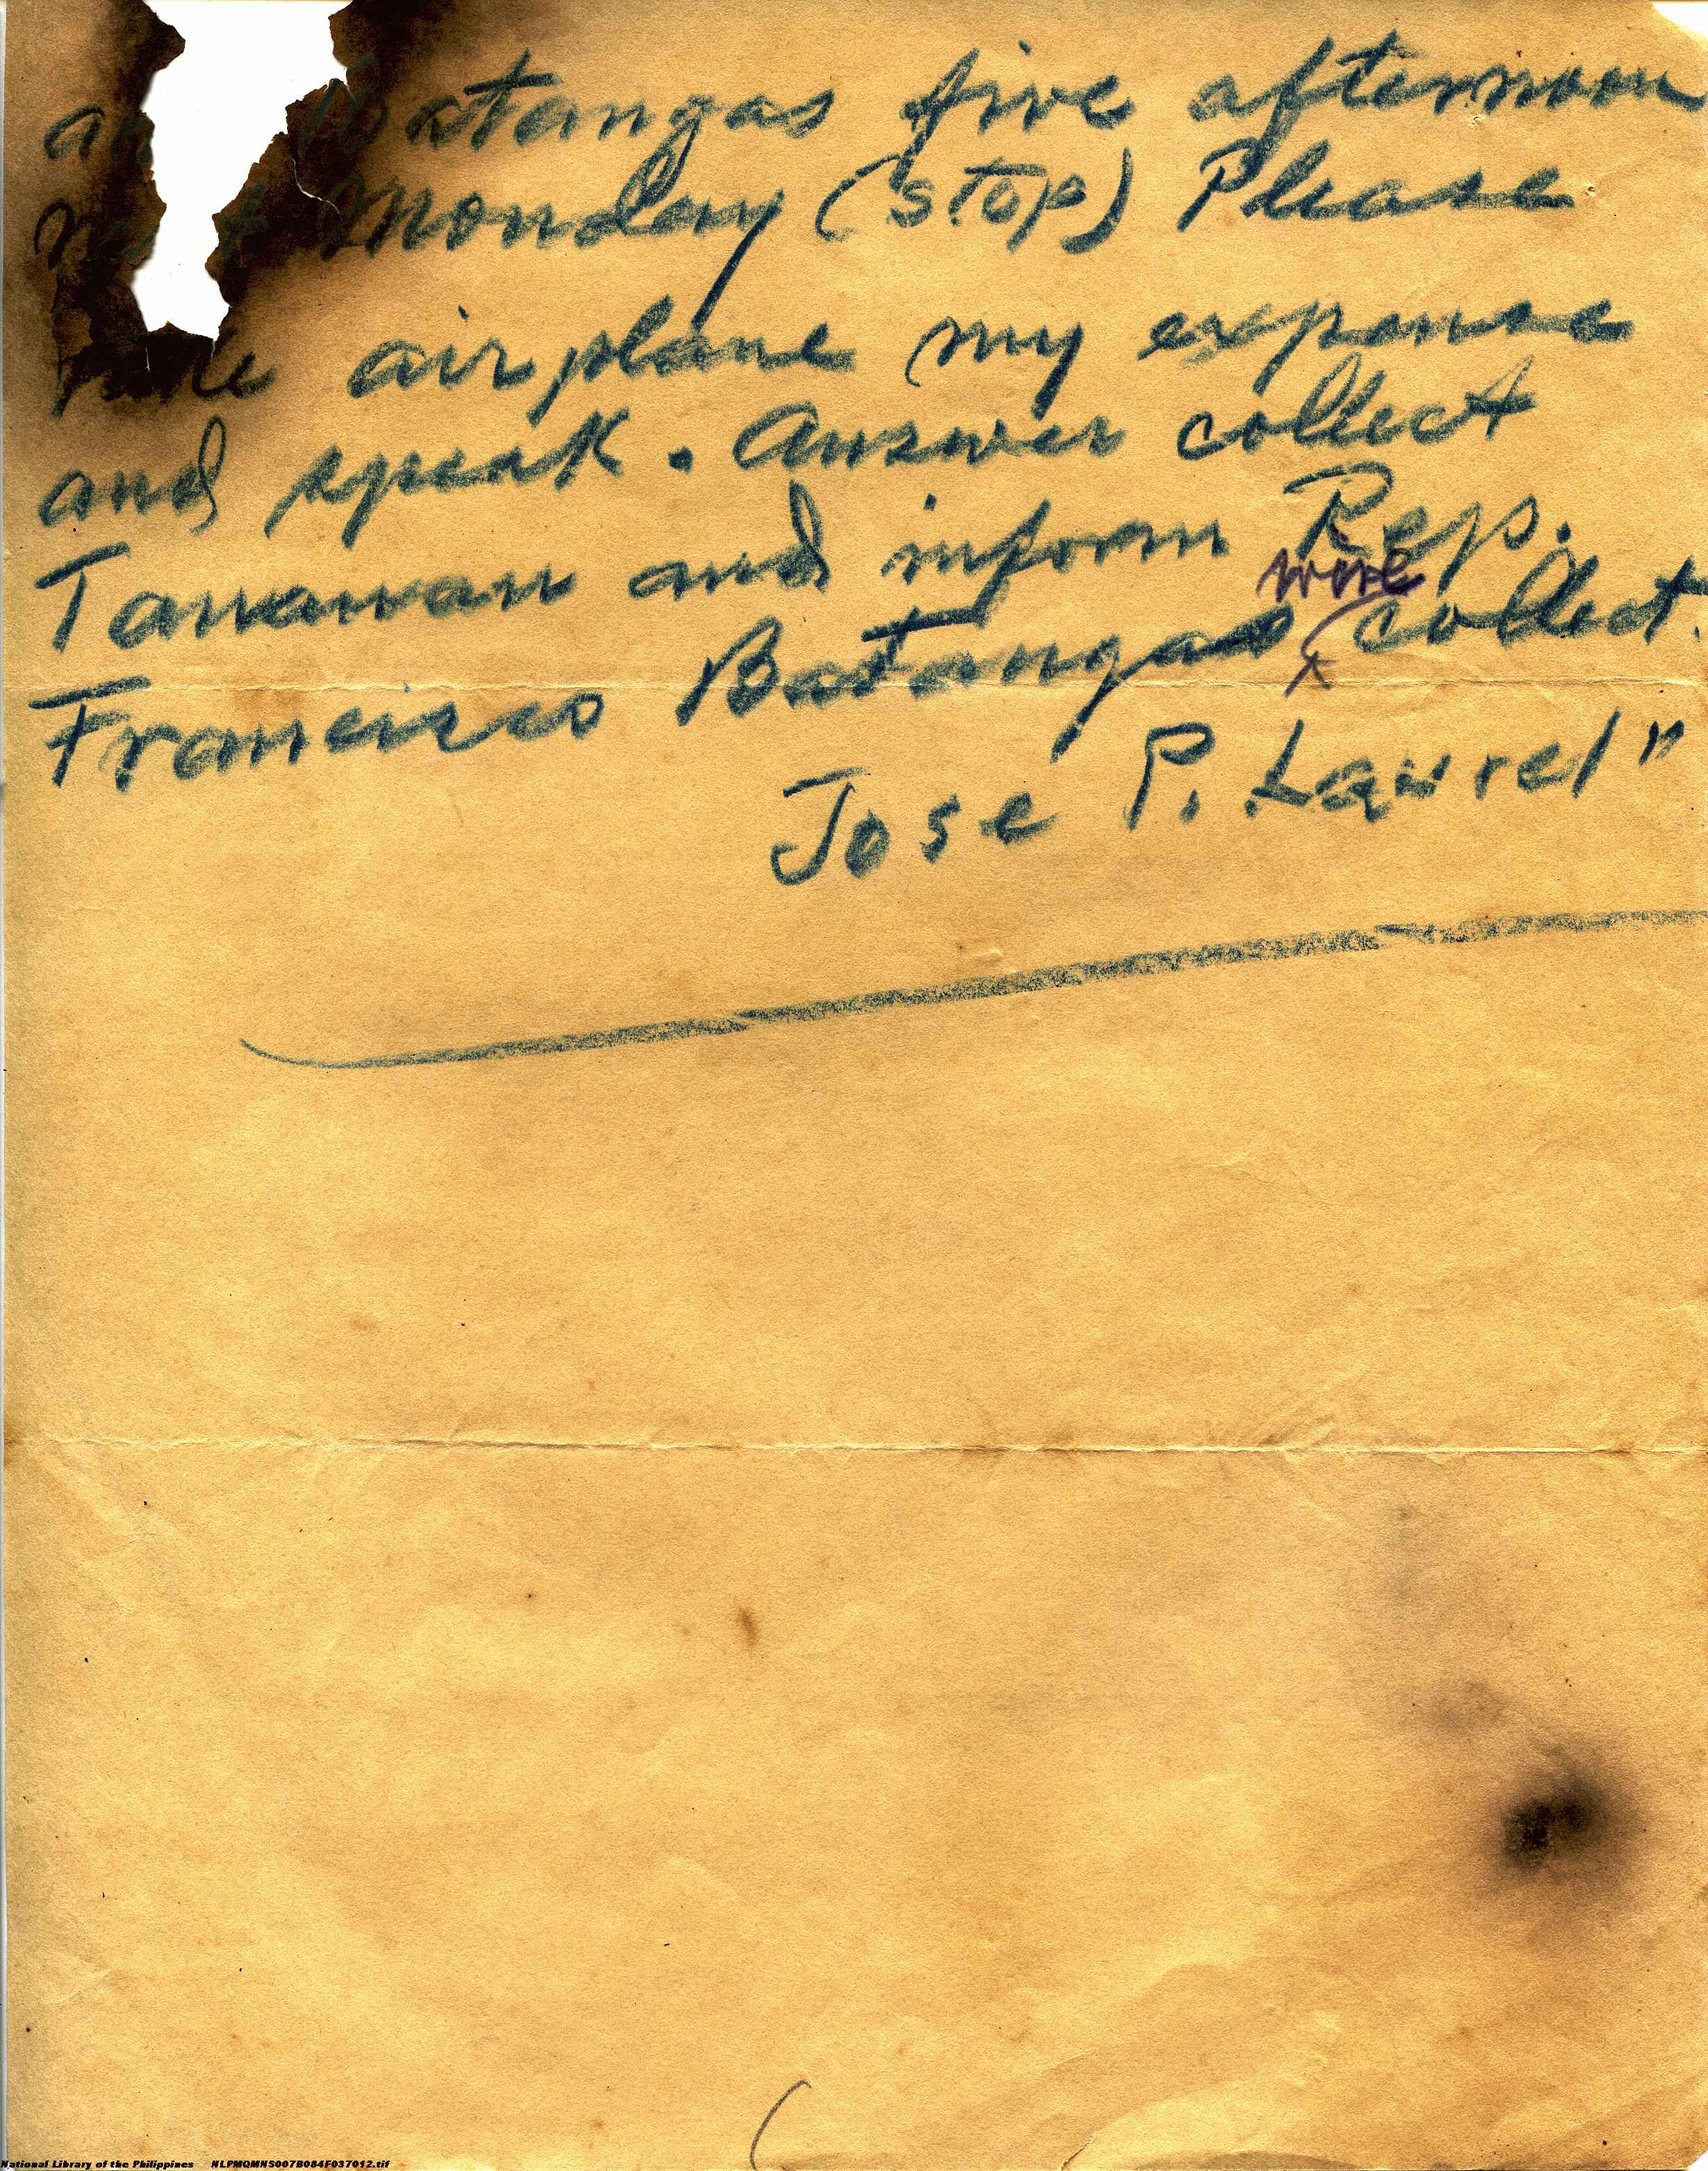 Batangas five afternoon
Monday (stop) Please
airplane my expense
and speak. Answer collect
Tanauan and inform Rep.
wire
Francisco Batangas collect.
Jose P. Laurel"
National Library of the Philippines NLPMQMNS007B084F037012.tif